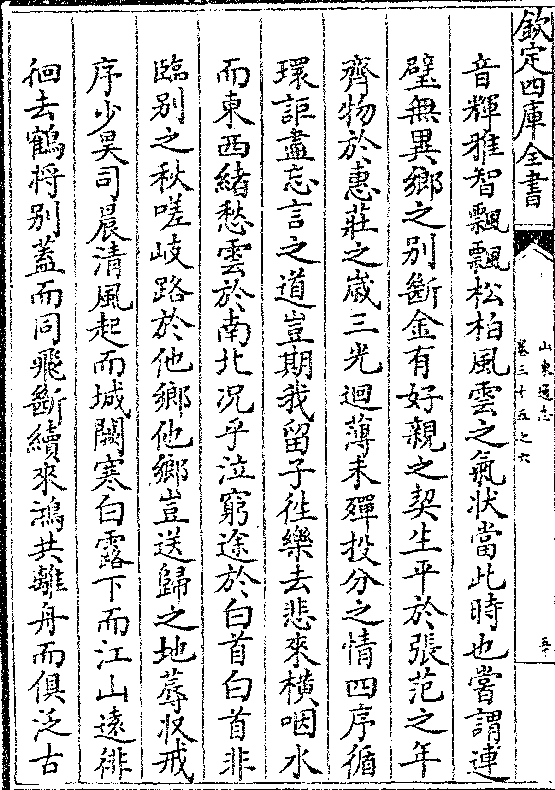 欽定四庫全書
山東通志
卷三十五之六
音輝雅智飄飄松柏風雲之氣狀當此時也嘗謂連
璧無異鄉之別斷金有好親之契生平於張范之年
齊物於惠莊之歲三光迴薄未殫投分之情四序循
環詎盡忘言之道豈期我留子徃樂去悲來橫咽水
而東西緒愁雲於南北况乎泣窮途於白首白首非
臨别之秋嗟岐路於他鄉他鄉豈送歸之地蓐收戒
序少昊司晨清風起而城闕寒白露下而江山遠徘
徊去鶴将别蓋而同飛斷續來鴻共離舟而俱泛古